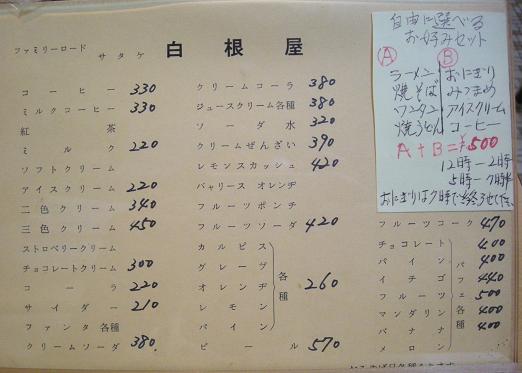 ファミリーロード サタケ 白根屋
コーヒー 330
ミルクコーヒー 330
紅茶
ミルク 220
ソフトクリーム
アイスクリーム 220
二色クリーム 340
三色クリーム 450
ストロベリークリーム
チョコレートクリーム 300
コーラ 220
サイダー 210
ファンタ各種
クリームソーダ 380
クリームコーラ 380
ジュースクリーム各種 380
ソーダ水 320
クリームぜんざい 390
レモンスカッシュ 420
バャリース オレンヂ
フルーツポンチ
フルーツソーダ 420
カルピス
グレープ
オレンヂ
レモン
パイン
各種 260
ビール 570
自由に選べる
お好みセット
Ⓐ Ⓑ
ラーメン おにぎり
焼そば みつまめ
ワンタン アイスクリーム
焼うどん コーヒー
A+B=¥500
12時ー2時
5時ー7時半
フルーツコーク 470
チョコレート 400
パイン 400
イチゴ 440
フルーツ 500
マンダリン 400
バナナ 400
メロン
パフェ各種